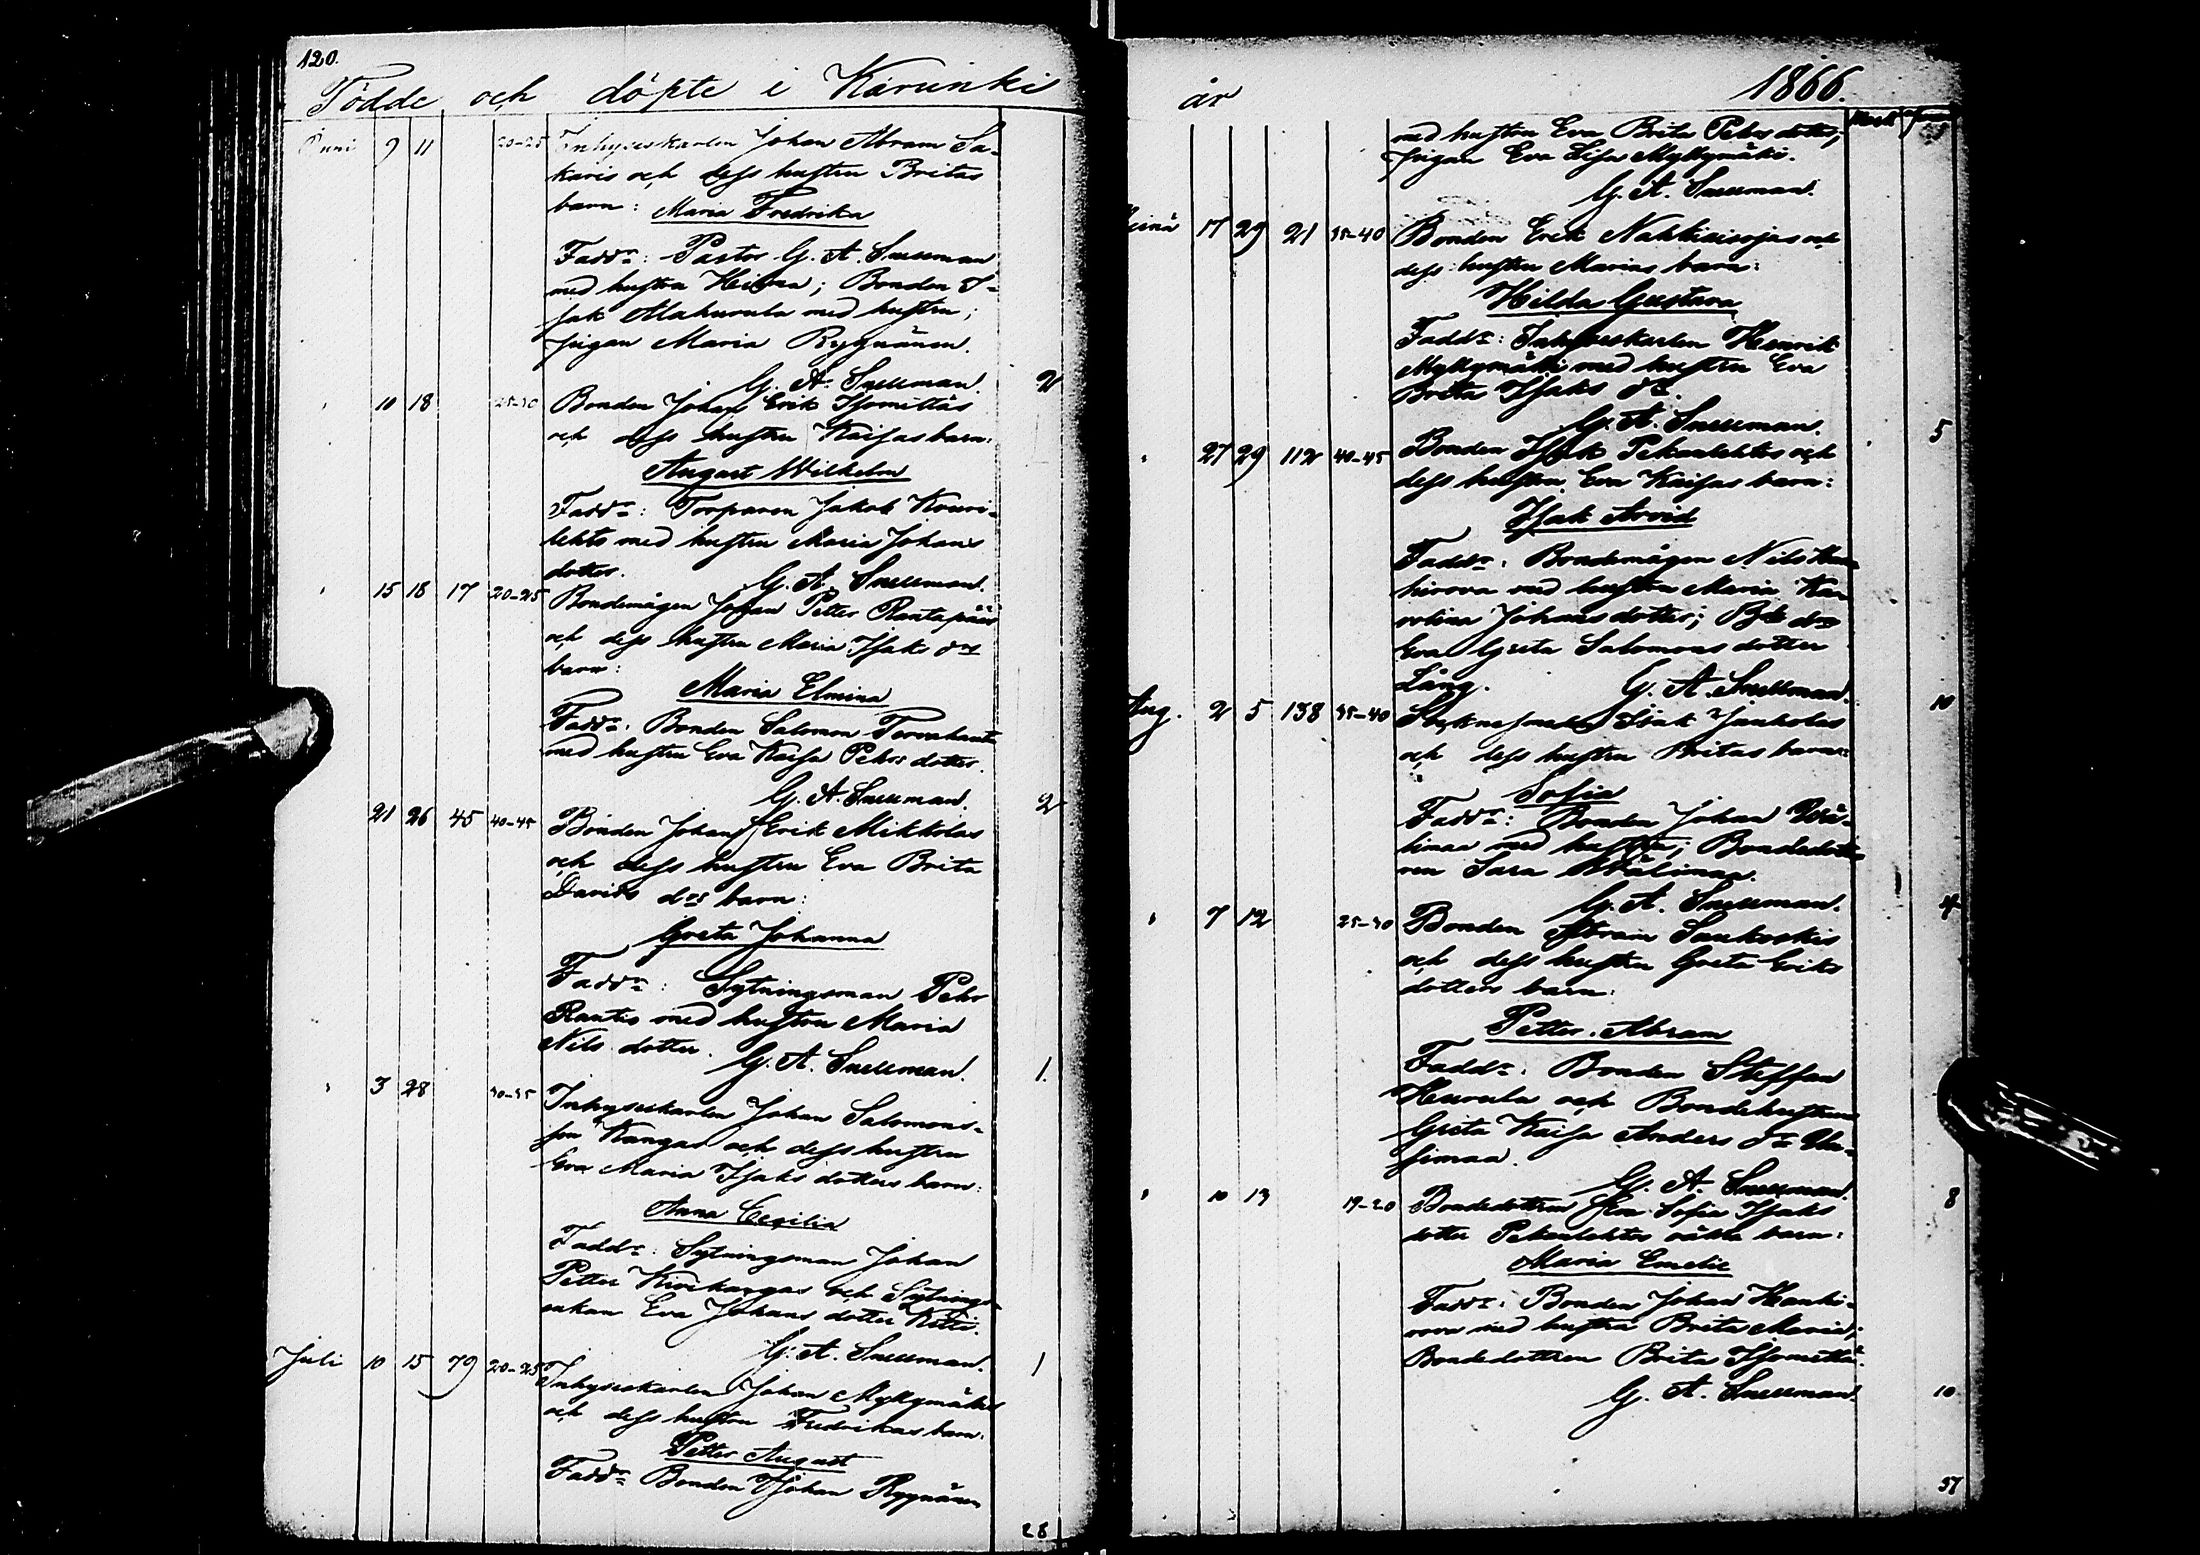 120.
Födde och döpte i Karunki
Juni 9 11 20-25 Inhyseskarlen Johan Abram Sa-
karis och dess hustru Britas
barn: Maria Fredrika
Faddr: Pastor G. A. Snellman
med hustru; Bonden I-
sak Mahurula med hustru;
pigan Maria Ryynänen.
G. A. Snellman. 2
10 18 25-30 Bonden Johan Erik Isomettäs
och dess hustru Kaisas barn:
August Wilhelm
Faddr: Torparen Jakob Kouri-
lehto med hustru Maria Johans
dotter. G. A. Snellman.
15 18 17 20-25 Bondemågen Johan Petter Rantapääs
och dess hustru Maria Isaks drs
barn:
Maria Elmina
Faddr: Bonden Salomon
med hustru Eva Kaisa Pehrs dotter.
G. A. Snellman. 2
21 26 45 40-45 Bonden Johan Erik Mikkolas
och dess hustru Eva Brita
Davids drs barn:
Greta Johanna
Faddr: Sytningsman Pehr
Rautio med hustru Maria
Nils dotter. G. A. Snellman. 1.
3 28 30-35 Inhyseskarlen Johan Salomons-
son Kangas och dess hustru
Eva Maria Isaks dotters barn:
Anna Cecilia
Faddr: Sytningsman Johan
Petter Kivikangas och Sytnings-
enkan Eva Johans dotter
G. A. Snellman. 1
Juli 10 15 79 20-25 Inhyseskarlen Johan Myllymäkis
och dess hustru Fredrikas barn:
Petter August
Faddr Bonden Johan Ryynänen
28
år 1866.
med hustru Eva Brita Pehrs dotter;
pigan Eva Lisa Myllymäki.
G. A. Snellman.
17 29 21 35-40 Bonden Erik Nahkiaisojas och
dess hustru Marias barn:
Hilda Gustava
Faddr: Inhyseskarlen Henrik
Myllymäki med hustru Eva
Brita Isaks dr.
G. A. Snellman. 5
27 29 112 40-45 Bonden Isak Pekanlehtos och
dess hustru Eva Kaisas barn:
Isak Arvid
Faddr: Bondemågen Nils
med hustru Maria Ka-
rolina Johans dotter;
Eva Greta Salomons dotter
Lång. G. A. Snellman. 10
Aug. 2 5 138 35-40 Isak Jankolas
och dess hustru Britas barn:
Sofia
Faddr: Bonden Johan Wä-
limaa med hustru; Bondedotte-
ren Sara Wälimaa.
G. A. Snellman. 4
7 12 25-30 Bonden Abram Saukoskis
och dess hustru Greta Eriks
dotters barn:
Petter Abram
Faddr: Bonden Steffan
Hurula och Bondehustrun
Greta Kaisa Anders dr
G. A. Snellman. 8
10 13 19-20 Bondedottren Eva Sofia Isaks
dotter Pekanlehtos oäkta barn:
Maria Emelie
Faddr: Bonden Johan Hanhi-
rova med hustru Brita Maria;
Bondedottren Brita Isomettä.
G. A. Snellman. 10
37